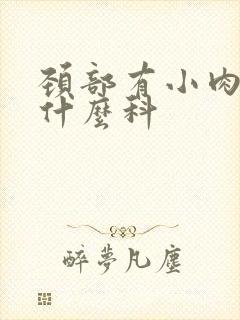 頸部有小肉
什麼科
醉夢凡塵